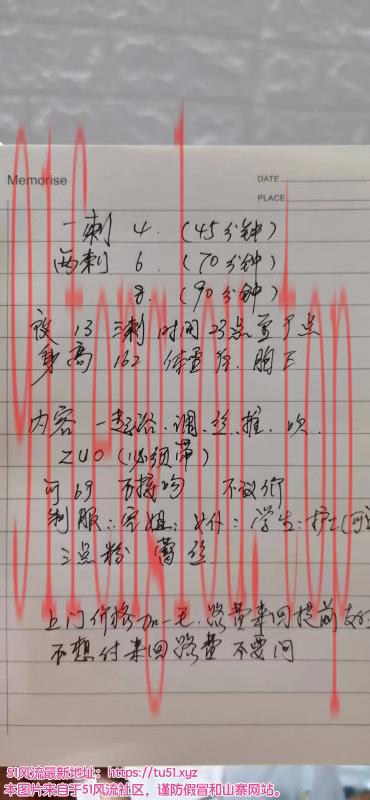 Memorise
DATE
PLACE
一刺 4. (45分钟)
两刺 6 (70分钟)
8. (90分钟)
夜 13 三刺 时间 23点至7点
身高 162 体重 胸E
内容 一起浴.调.丝.推.吹.
ZUO (必须带)
可69 不接吻 不议价
制服:空姐:女仆:学生:护士
三点粉 蕾丝.
上门价格加一毛.路费来回提前支付
不想付来回路费 不要问
51风流最新地址:https://tu51.xyz
本图片来自于51风流社区,谨防假冒和山寨网站。